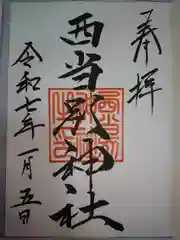 奉拝
西当別神社
令和七年一月五日